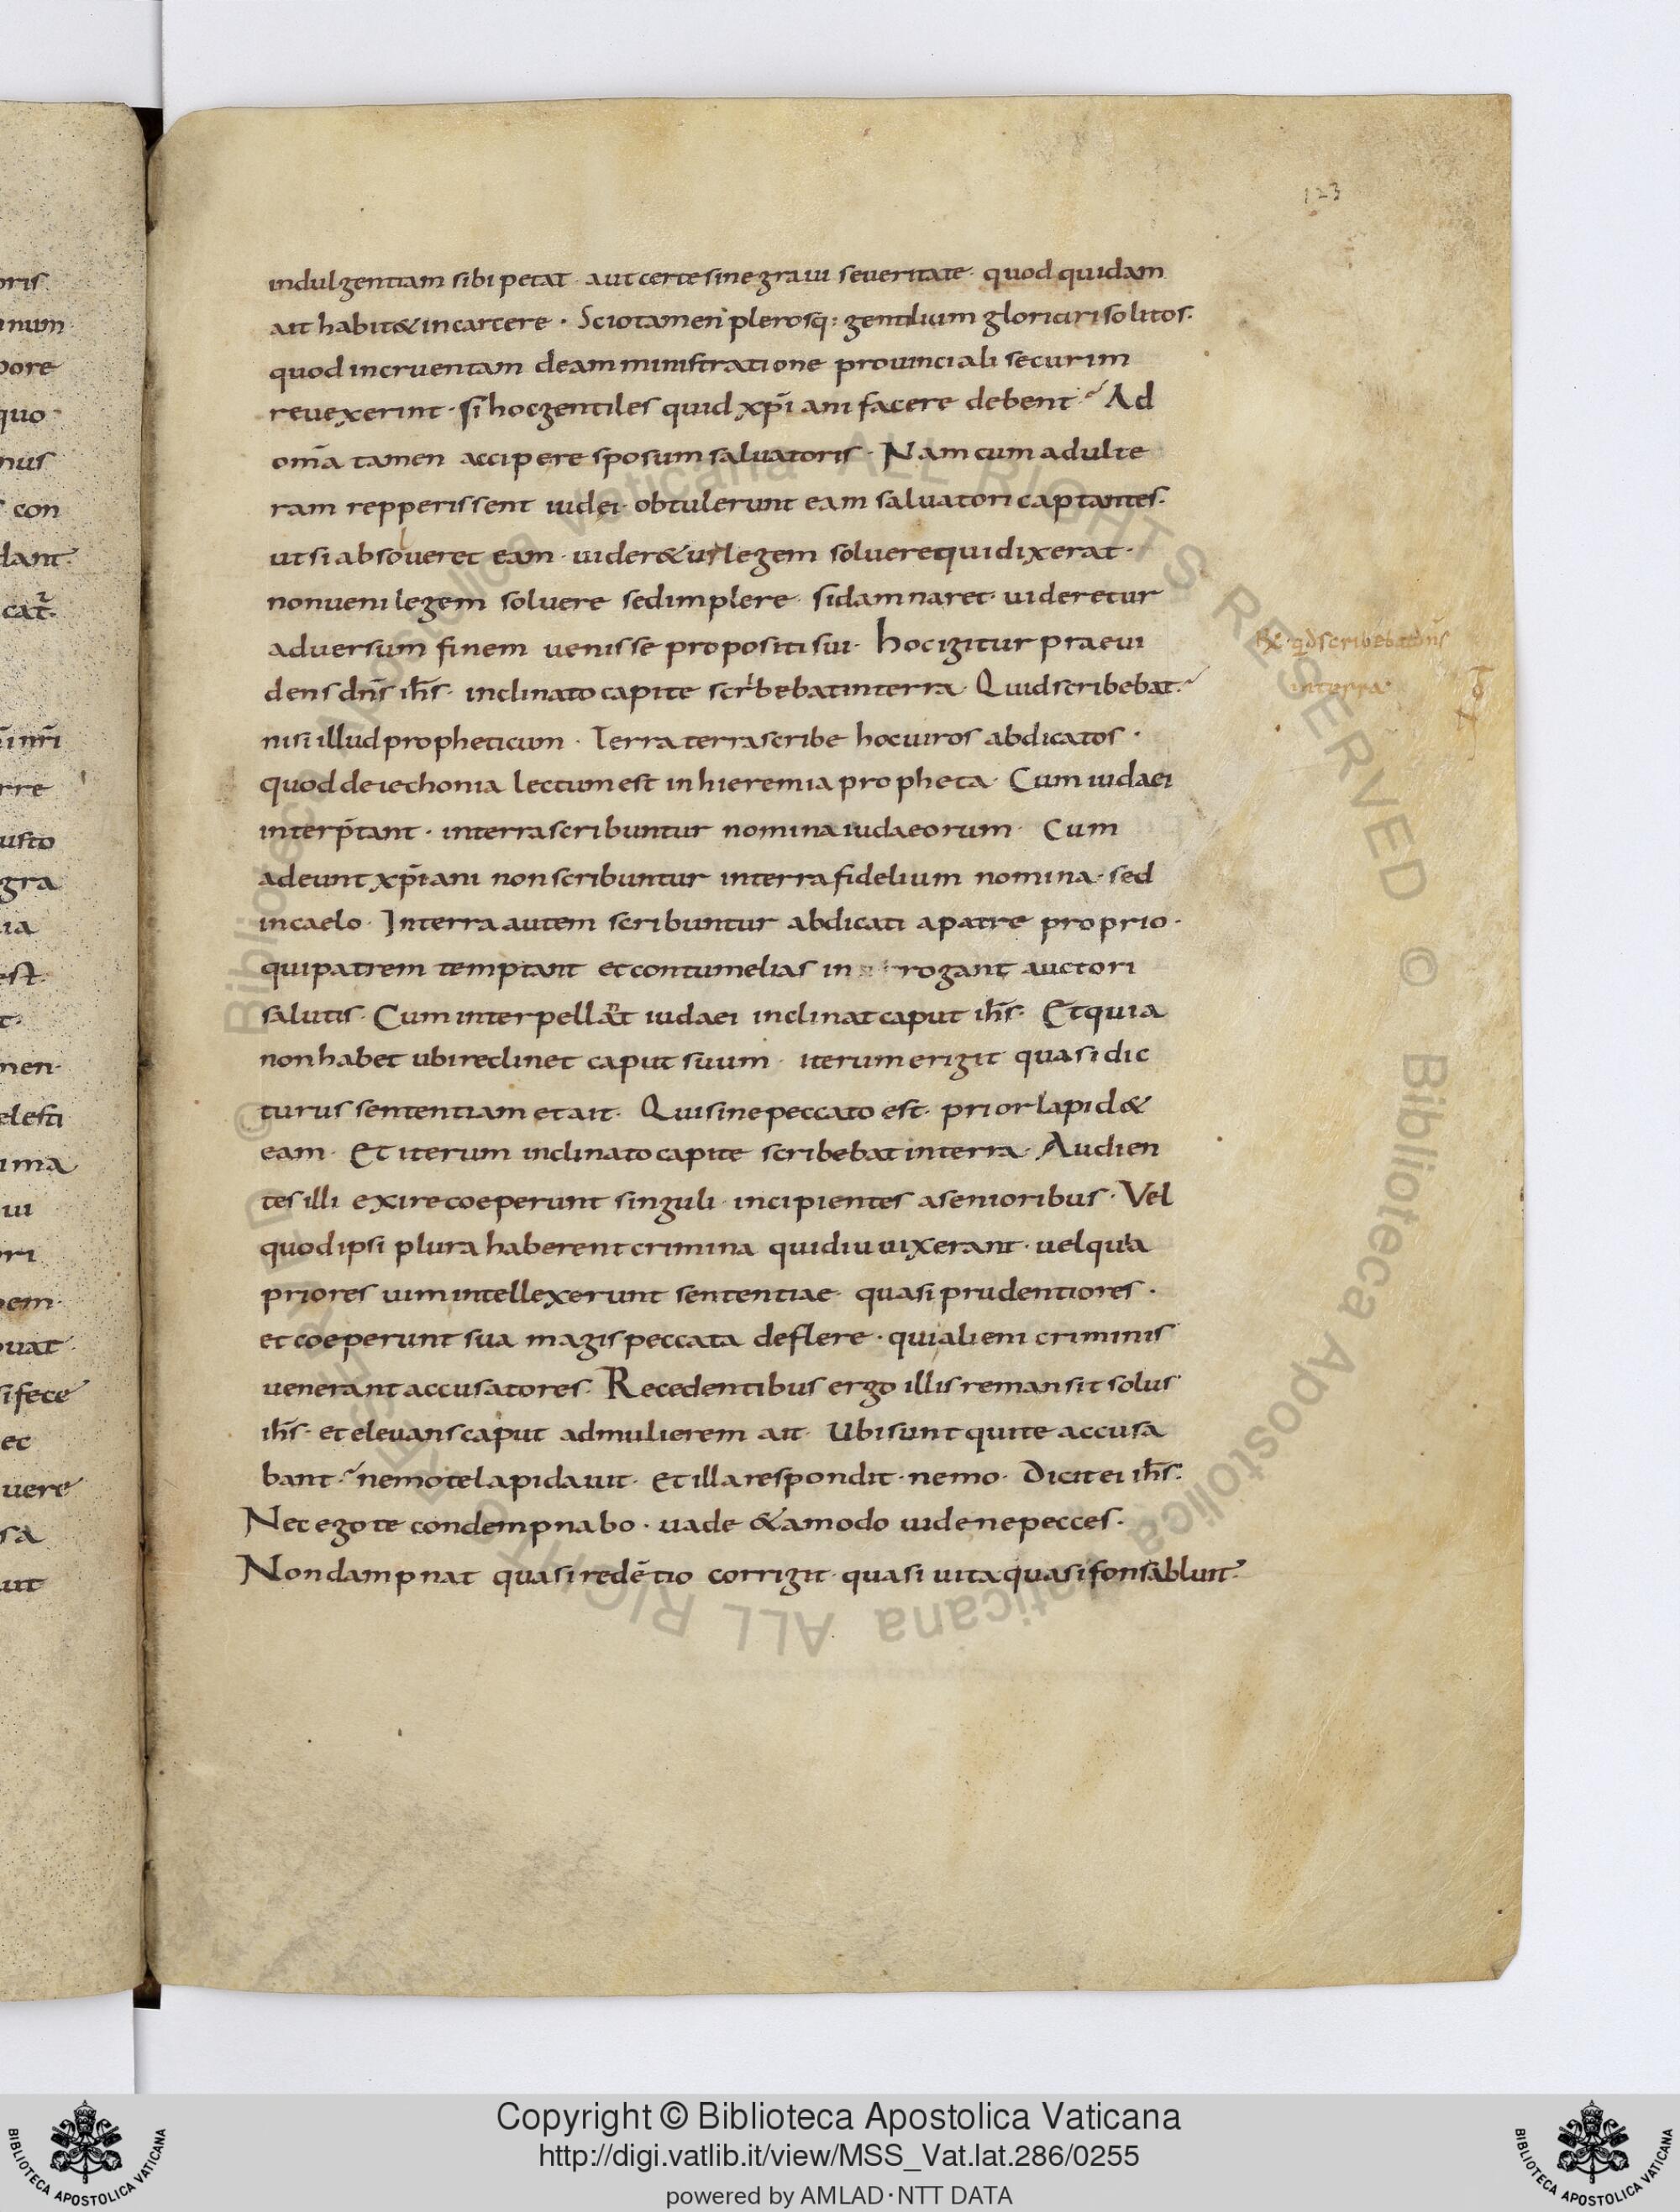 123
indulgentiam sibi petat · aut certe sine graui seueritate · quod quidam
ait habit& in carcere · Scio tamen plerosq: gentilium gloriari solitos ·
quod incruentam de amministratione prouinciali securim
reuexerint · si hoc gentiles quid xp̄iani facere debent · Ad
om̄a tamen accipere sposum saluatoris · Nam cum adulte
ram repperissent iudei · obtulerunt eam saluatori captantes ·
ut si absolueret eam · uider& ur legem solueret qui dixerat ·
non ueni legem soluere sed implere · si damnaret · uideretur
aduersum finem uenisse propositi sui · hoc igitur praeui
dens dn̄s ih̄s · inclinato capite scribebat in terra · Quid scribebat ·
nisi illud propheticum · Terra terra scribe hoc uiros abdicatos ·
quod de iechonia lectum est in hieremia propheta · Cum iudaei
interp̄tant · in terra scribuntur nomina iudaeorum · Cum
adeunt xp̄iani non scribuntur in terra fidelium nomina · sed
in caelo · In terra autem scribuntur abdicati a patre proprio ·
qui patrem temptant et contumelias in rogant auctori
salutis · Cum interpellar̄t iudaei inclinat caput ih̄s · Et quia
non habet ubi reclinet caput suum · iterum erigit quasi dic
turus sententiam et ait · Qui sine peccato est · prior lapid&
eam · Et iterum inclinato capite scribebat in terra · Audien
tes illi exire coeperunt singuli · incipientes a senioribus · Vel
quod ipsi plura haberent crimina qui diu uixerant · uel quia
priores uim intellexerunt sententiae · quasi prudentiores ·
et coeperunt sua magis peccata deflere · qui alieni criminis
uenerant accusatores · Recedentibus ergo illis remansit solus
ih̄s · et eleuans caput ad mulierem ait · Ubi sunt qui te accusa
bant · nemo te lapidauit · et illa respondit · nemo · Dicit ei ih̄s ·
Nec ego te condempnabo · uade & amodo uide ne pecces ·
Non dampnat quasi redētio corrigit · quasi uita quasi fons abluit ·
qd scribebat dn̄s
in terra
Copyright © Biblioteca Apostolica Vaticana
http://digi.vatlib.it/view/MSS_Vat.lat.286/0255
powered by AMLAD·NTT DATA
BIBLIOTECA APOSTOLICA VATICANA
BIBLIOTECA APOSTOLICA VATICANA